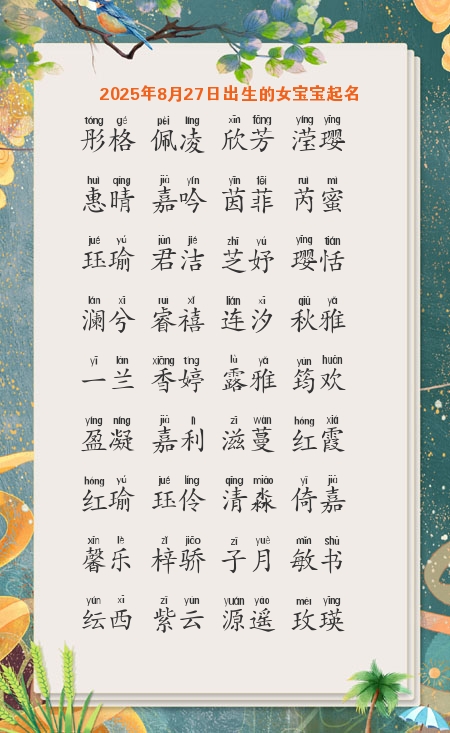 2025年8月27日出生的女宝宝起名
tóng gé pèi líng xīn fāng yíng yīng
彤格 佩凌 欣芳 滢璎
huì qíng jiā yín yīn fēi ruì mì
惠晴 嘉吟 茵菲 芮蜜
jué yú jūn jié zhī yú yīng tián
珏瑜 君洁 芝妤 璎恬
lán xī ruì xǐ lián xī qiū yǎ
澜兮 睿禧 连汐 秋雅
yī lán xiāng tíng lù yǎ yún huān
一兰 香婷 露雅 筠欢
yíng níng jiā lì zī wàn hóng xiá
盈凝 嘉利 滋蔓 红霞
hóng yú jué líng qīng miǎo yǐ jiā
红瑜 珏伶 清淼 倚嘉
xīn lè zǐ jiāo zǐ yuè mǐn shū
馨乐 梓骄 子月 敏书
yún xī zǐ yún yuán yáo méi yīng
纭西 紫云 源遥 玫瑛